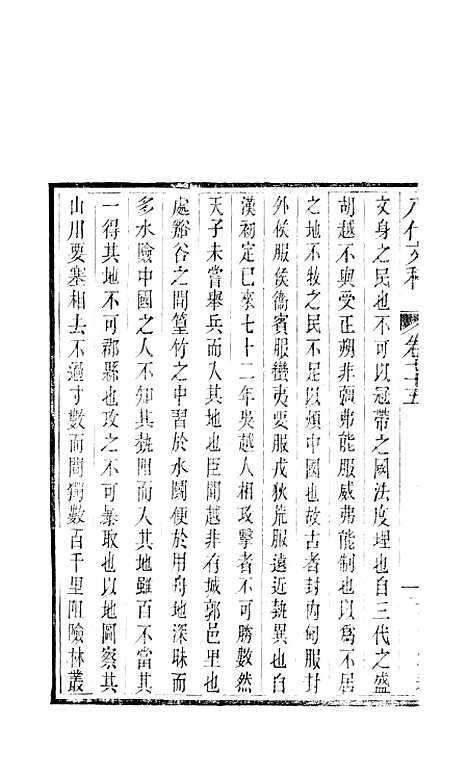 八代文稡 卷之十五
文身之民也不可以冠帶之國法度理也自三代之盛
胡越不與受正朔非彊弗能服威弗能制也以爲不居
之地不牧之民不足以煩中國也故古者封內甸服封
外侯服侯衞賓服蠻夷要服戎狄荒服遠近埶異也自
漢初定已來七十二年吳越人相攻擊者不可勝數然
天子未嘗舉兵而入其地也臣聞越非有城郭邑里也
處谿谷之間篁竹之中習於水鬬便於用舟地深昧而
多水險中國之人不知其埶阻而入其地雖百不當其
一得其地不可郡縣也攻之不可暴取也以地圖察其
山川要塞相去不過寸數而間獨數百千里阻險林叢